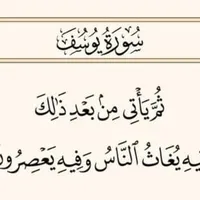 سُورَةُ يُوسُفَ
ثُمَّ يَأْتِى مِنۢ بَعْدِ ذَٰلِكَ
يهِ يُغَاثُ ٱلنَّاسُ وَفِيهِ يَعْصِرُون